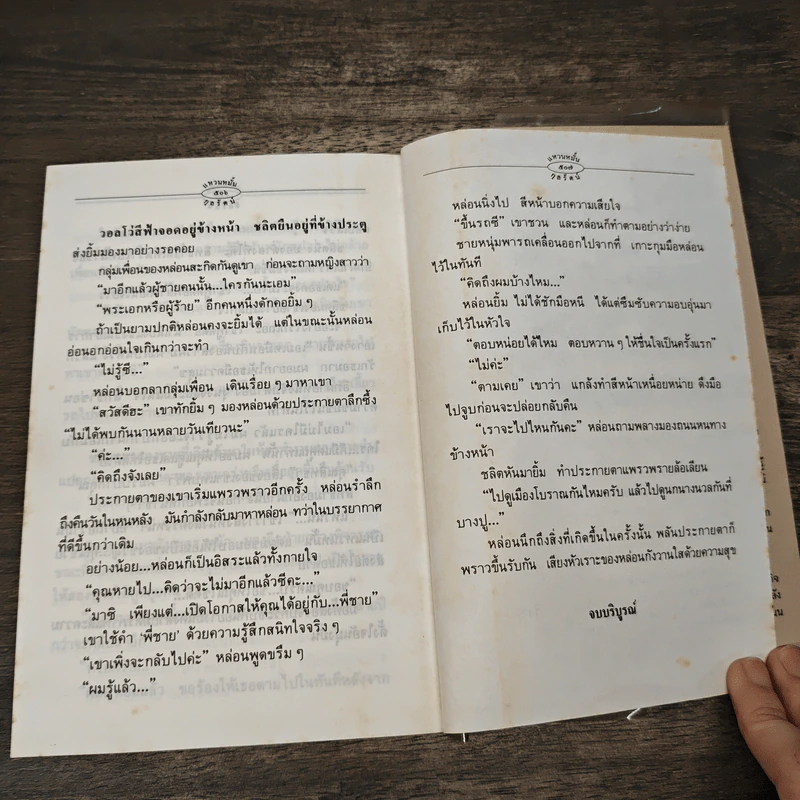 แหวนหมั้น
๕๐๖
กุลรัตน์
วอลโว่สีฟ้าจอดอยู่ข้างหน้า ชลิตยืนอยู่ที่ข้างประตู
ส่งยิ้มมองมาอย่างรอคอย
กลุ่มเพื่อนของหล่อนสะกิดกันดูเขา ก่อนจะถามหญิงสาวว่า
“มาอีกแล้วผู้ชายคนนั้น...ใครกันนะเอม”
“พระเอกหรือผู้ร้าย” อีกคนหนึ่งดักคอยิ้ม ๆ
ถ้าเป็นยามปกติหล่อนคงจะยิ้มได้ แต่ในขณะนั้นหล่อน
อ่อนอกอ่อนใจเกินกว่าจะทำ
“ไม่รู้ซี...”
หล่อนบอกลากลุ่มเพื่อน เดินเรื่อย ๆ มาหาเขา
“สวัสดีฮะ” เขาทักยิ้ม ๆ มองหล่อนด้วยประกายตาลึกซึ้ง
“ไม่ได้พบกันนานหลายวันเทียวนะ”
“ค่ะ...”
“คิดถึงจังเลย”
ประกายตาของเขาเริ่มแพรวพราวอีกครั้ง หล่อนรำลึก
ถึงคืนวันในหนหลัง มันกำลังกลับมาหาหล่อน ทว่าในบรรยากาศ
ที่ดีขึ้นกว่าเดิม
อย่างน้อย...หล่อนก็เป็นอิสระแล้วทั้งกายใจ
“คุณหายไป...คิดว่าจะไม่มาอีกแล้วซีคะ...”
“มาซิ เพียงแต่...เปิดโอกาสให้คุณได้อยู่กับ...พี่ชาย”
เขาใช้คำ ‘พี่ชาย’ ด้วยความรู้สึกสนิทใจจริง ๆ
“เขาเพิ่งจะกลับไปค่ะ” หล่อนพูดขรึม ๆ
“ผมรู้แล้ว...”
แหวนหมั้น
๕๐๗
กุลรัตน์
หล่อนนิ่งไป สีหน้าบอกความเสียใจ
“ขึ้นรถซี” เขาชวน และหล่อนก็ทำตามอย่างว่าง่าย
ชายหนุ่มพารถเคลื่อนออกไปจากที่ เกาะกุมมือหล่อน
ไว้ในทันที
“คิดถึงผมบ้างไหม...”
หล่อนยิ้ม ไม่ได้ชักมือหนี ได้แต่ซึมซับความอบอุ่นมา
เก็บไว้ในหัวใจ
“ตอบหน่อยได้ไหม ตอบหวาน ๆ ให้ชื่นใจเป็นครั้งแรก”
“ไม่ค่ะ”
“ตามเคย” เขาว่า แกล้งทำสีหน้าเหนื่อยหน่าย ดึงมือ
ไปจูบก่อนจะปล่อยกลับคืน
“เราจะไปไหนกันคะ” หล่อนถามพลางมองถนนหนทาง
ข้างหน้า
ชลิตหันมายิ้ม ทำประกายตาแพรวพรายล้อเลียน
“ไปดูเมืองโบราณกันไหมครับ แล้วไปดูนกนางนวลกันที่
บางปู...”
หล่อนนึกถึงสิ่งที่เกิดขึ้นในครั้งนั้น พลันประกายตาก็
พราวขึ้นรับกัน เสียงหัวเราะของหล่อนกังวานใสด้วยความสุข
จบบริบูรณ์